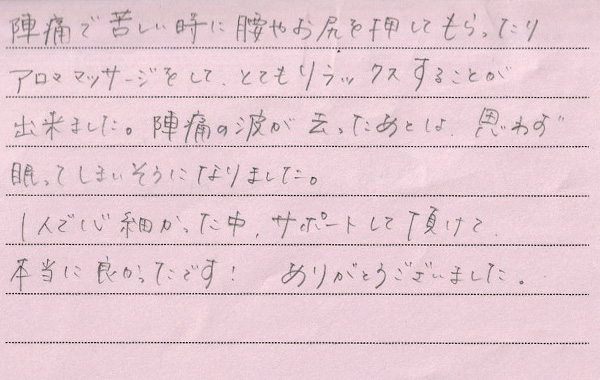 陣痛で苦しい時に腰やお尻を押してもらったり
アロママッサージをして、とてもリラックスすることが
出来ました。陣痛の波が去ったあとは、思わず
眠ってしまいそうになりました。
1人で心細かった中、サポートして頂けて、
本当に良かったです! ありがとうございました。